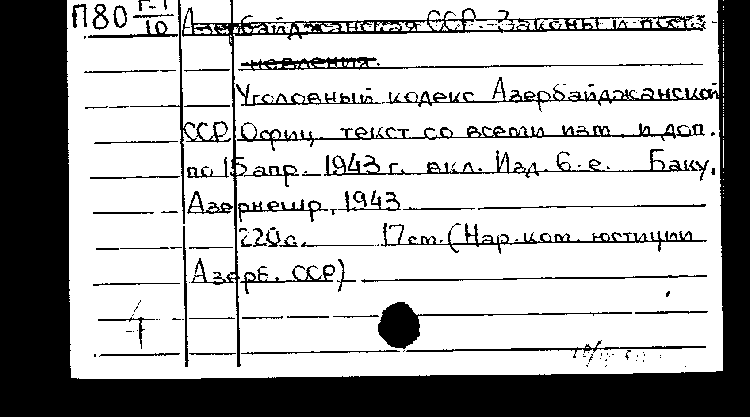 П80 Г-1
10
Азербайджанская ССР. Законы и поста-
новления.
Уголовный кодекс Азербайджанской
ССР. Офиц. текст со всеми изм. и доп.
по 15 апр. 1943 г. вкл. Изд. 6-е. Баку,
Азернешр, 1943.
220 с. 17 см. (Нар. ком. юстиции
Азерб. ССР)
4